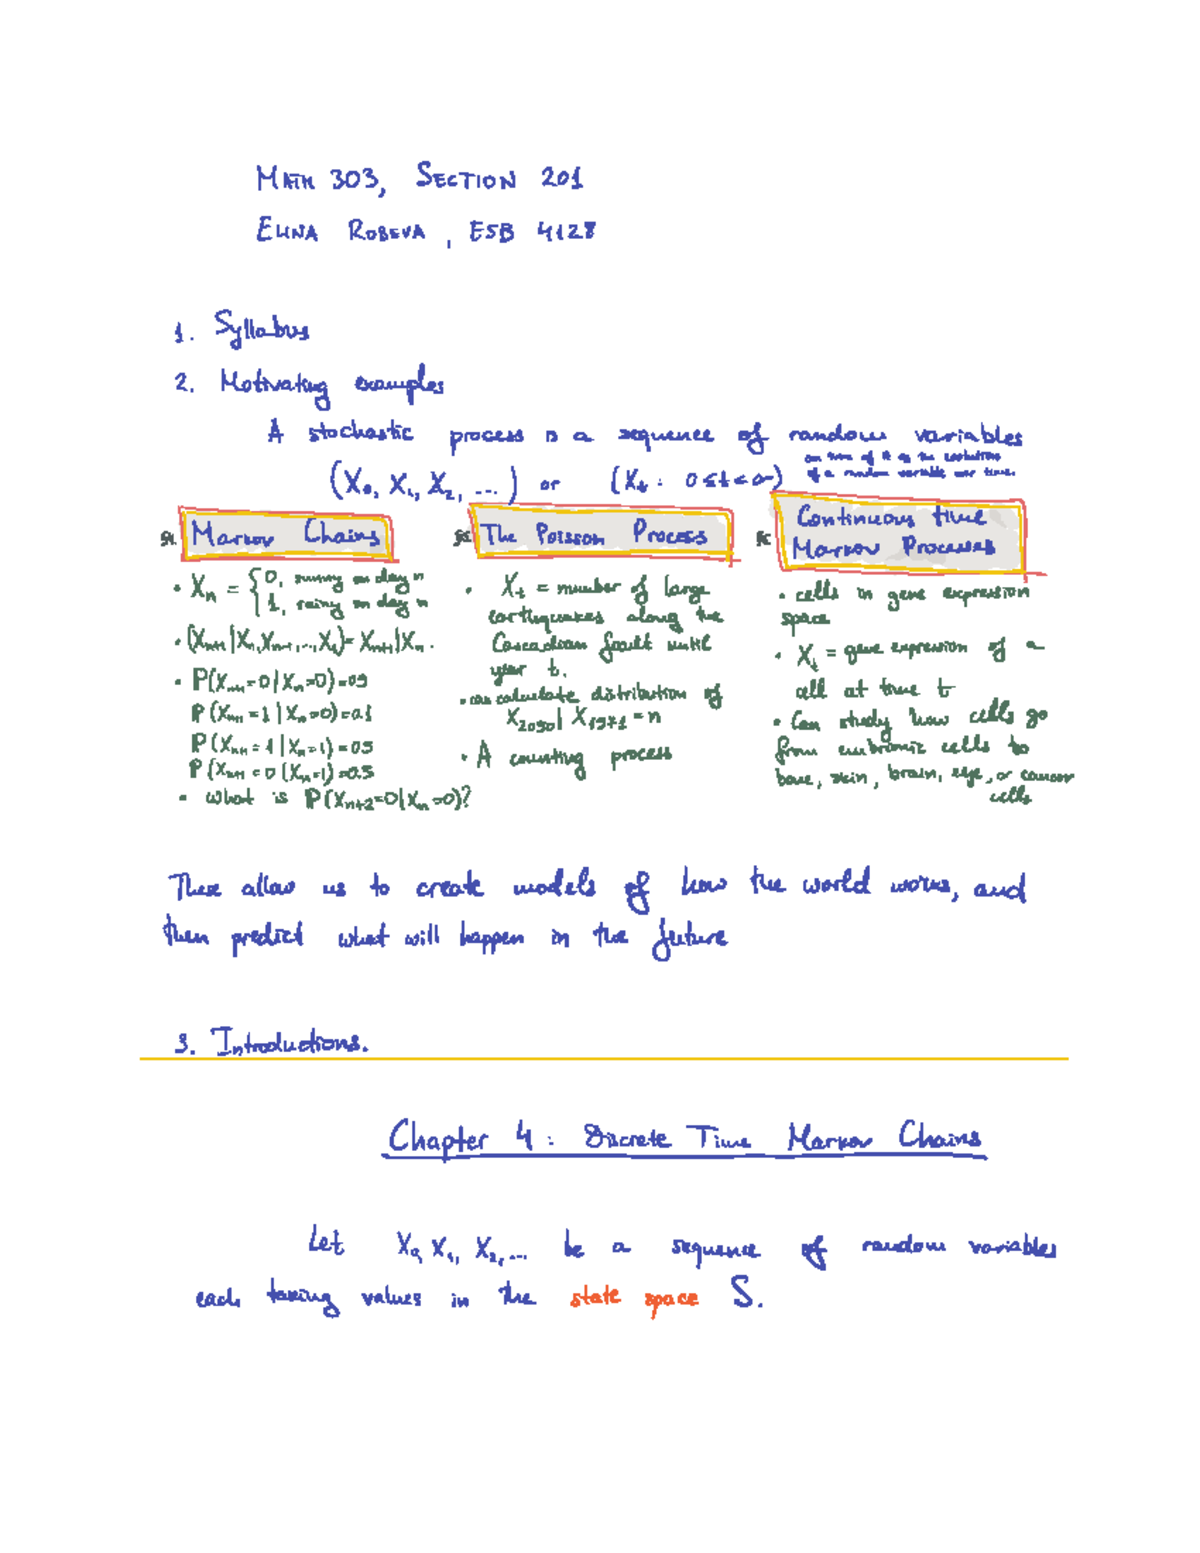 MATH 303, SECTION 201
ELINA ROBEVA, ESB 4128
1. Syllabus
2. Motivating examples
A stochastic process is a sequence of random variables
(X₀, X₁, X₂, ...) or (Xₜ : 0≤t<∞)
can think of it as the evolution
of a random variable over time.
Markov Chains
• Xₙ = { 0, sunny on day n
1, rainy on day n
• (Xₙ₊₁|Xₙ,Xₙ₋₁,...,X₁)=Xₙ₊₁|Xₙ.
• P(Xₙ₊₁=0|Xₙ=0)=0.9
P(Xₙ₊₁=1|Xₙ=0)=0.1
P(Xₙ₊₁=1|Xₙ=1)=0.5
P(Xₙ₊₁=0|Xₙ=1)=0.5
• What is P(Xₙ₊₂=0|Xₙ=0)?
The Poisson Process
• Xₜ = number of large
earthquakes along the
Cascadian fault until
year t.
• can calculate distribution of
X₂₀₃₀| X₁₉₇₁=n
• A counting process
Continuous time
Markov Processes
• cells in gene expression
space
• Xₜ = gene expression of a
cell at time t
• Can study how cells go
from embrionic cells to
bone, skin, brain, eye, or cancer
cells
These allow us to create models of how the world works, and
then predict what will happen in the future
3. Introductions.
Chapter 4: Discrete Time Markov Chains
Let X₀, X₁, X₂,... be a sequence of random variables
each taking values in the state space S.